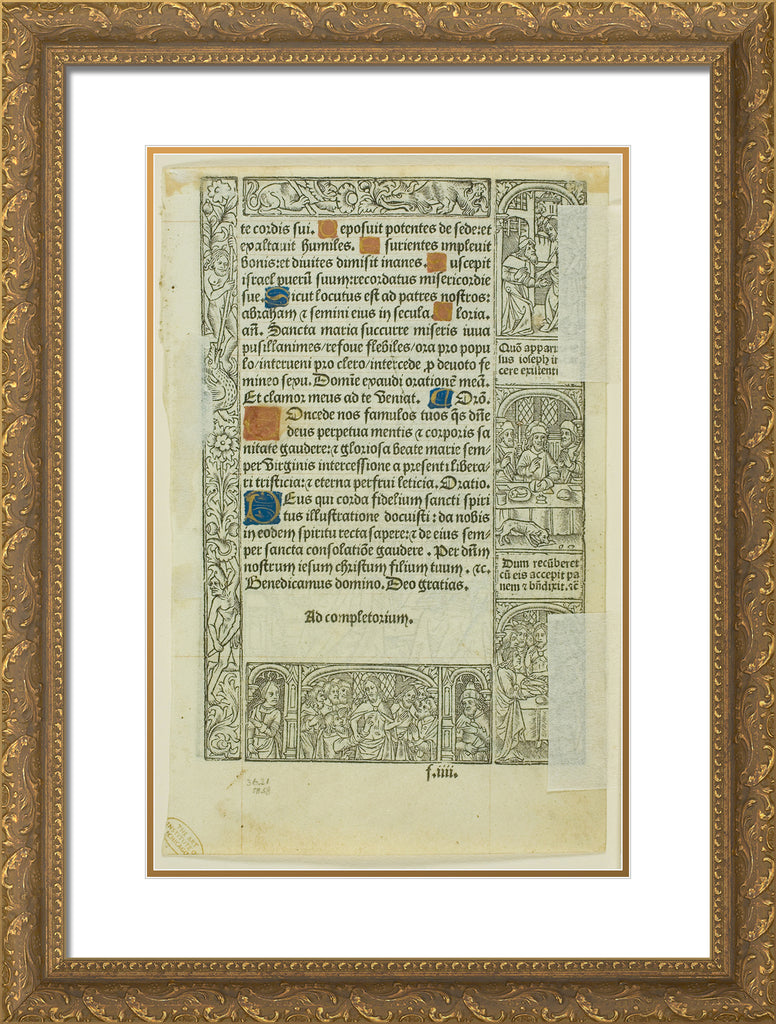 te cordis sui. Deposuit potentes de sede: et
exaltauit humiles. Esurientes impleuit
bonis: et diuites dimisit inanes. Suscepit
israel puerū suum: recordatus misericordie
sue. Sicut locutus est ad patres nostros:
abraham ⁊ semini eius in secula. Gloria.
an̄. Sancta maria succurre miseris iuua
pusillanimes/ refoue flebiles/ ora pro popu
lo/ interueni pro clero/ intercede ꝓ deuoto fe
mineo sexu. Domīe exaudi orationē meā.
Et clamor meus ad te veniat. Orō.
Concede nos famulos tuos q̄s dn̄e
deus perpetua mentis ⁊ corporis sa
nitate gaudere: ⁊ gloriosa beate marie sem-
per virginis intercessione a presenti libera-
ri tristicia: ⁊ eterna perfrui leticia. Oratio.
Deus qui corda fidelium sancti spiri
tus illustratione docuisti: da nobis
in eodem spiritu recta sapere: ⁊ de eius sem-
per sancta consolatiōe gaudere. Per dn̄m
nostrum iesum christum filium tuum. ⁊c.
Benedicamus domino. Deo gratias.
Ad completorium.
Quō appari
tus ioseph in
cere existenti
Dum recūberet
cū eis accepit pa
nem ⁊ bn̄dixit. ⁊c
f.iiii.
THE ART
INSTITUTE OF
CHICAGO